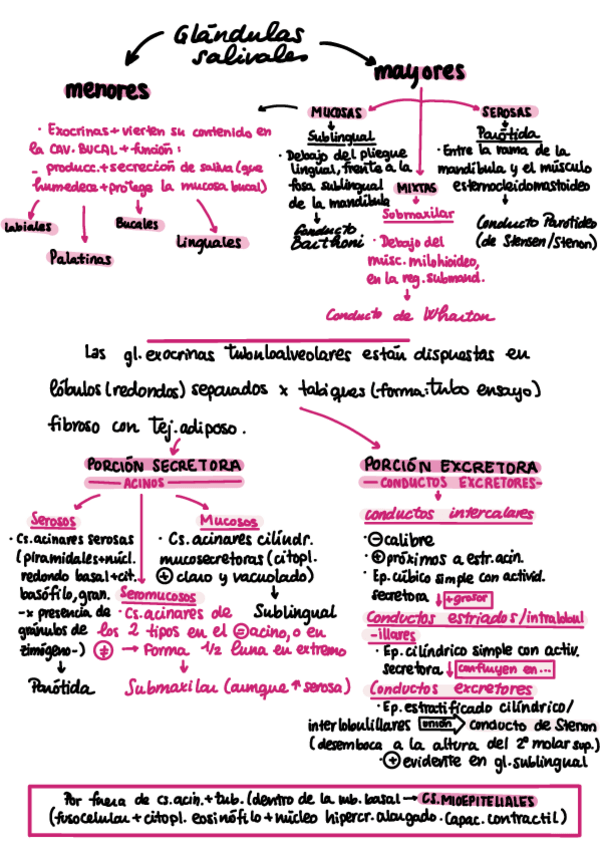 Glándulas
salivales
menores
mayores
· Exocrinas + vierten su contenido en
la CAV. BUCAL + función:
- producc. + secreción de saliva (que
humedece + protege la mucosa bucal)
Labiales
Palatinas
Bucales
Linguales
MUCOSAS
Sublingual
· Debajo del pliegue
lingual, frente a la
fosa sublingual
de la mandíbula
Conducto
Bartholini
MIXTAS
Submaxilar
· Debajo del
músc. milohioideo,
en la reg. submand.
Conducto de Wharton
SEROSAS
Parótida
· Entre la rama de la
mandíbula y el músculo
esternocleidomastoideo
Conducto Parotídeo
(de Stensen/Stenon)
Las gl. exocrinas tubuloalveolares están dispuestas en
lóbulos (redondos) separados x tabiques (-forma: tubo ensayo)
fibroso con Tej. adiposo.
PORCIÓN SECRETORA
ACINOS
Serosos
· Cs. acinares serosas
(piramidales + núcl.
redondo basal + cit.
basófilo, gran.
-x presencia de
gránulos de
zimógeno-)
Parótida
Mucosos
· Cs. acinares cilíndr.
mucosecretoras (citopl.
⊕ claro y vacuolado)
Sublingual
Seromucosos
· Cs. acinares de
los 2 tipos en el ⊜ acino, o en
≠ → Forma 1/2 luna en extremo
Submaxilar (aunque ↑ serosa)
PORCIÓN EXCRETORA
- CONDUCTOS EXCRETORES -
conductos intercalares
· ⊖ calibre
· ⊕ próximos a estr. acin.
· Ep. cúbico simple con activid.
secretora ↓ + grosor
Conductos estriados/intralobul
-illares
· Ep. cilíndrico simple con activ.
secretora ↓ confluyen en...
Conductos excretores
· Ep. estratificado cilíndrico/
interlobulillares unión conducto de Stenon
(desemboca a la altura del 2º molar sup.)
· ⊕ evidente en gl. sublingual
Por fuera de cs. acin. + tub. (dentro de la mb. basal → CS. MIOEPITELIALES
(fusocelular + citopl. eosinófilo + núcleo hipercr. alargado. Capac. contractil)